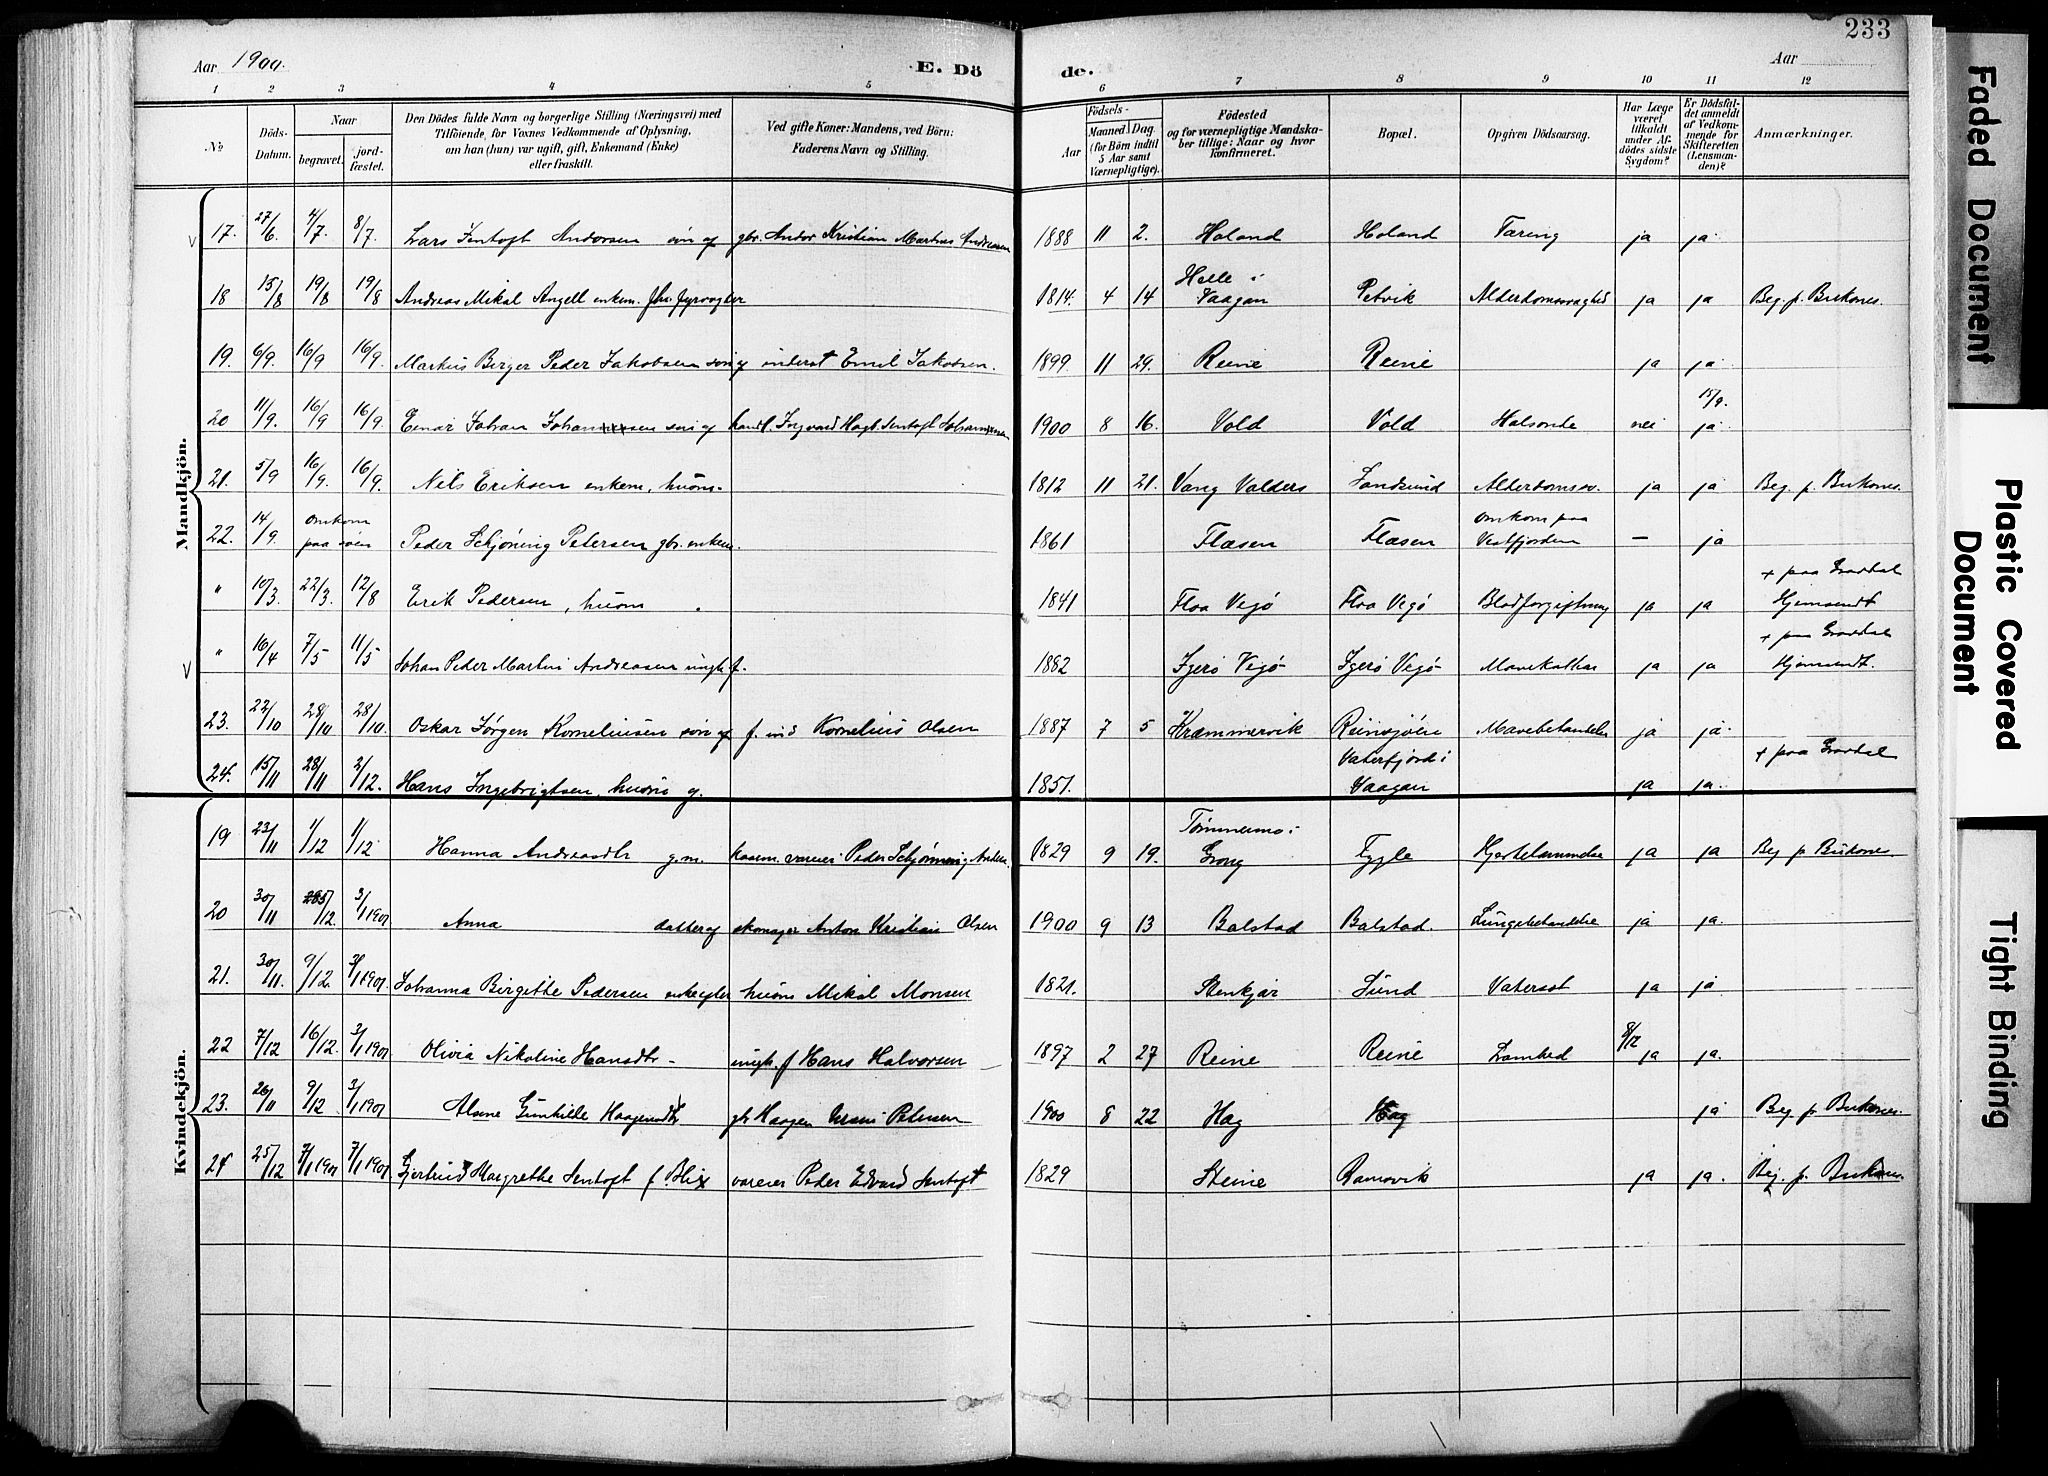 233
Aar 1900. E. Dö de. Aar
1 2 3 4 5 6 7 8 9 10 11 12
No
Döds-Datum.
Naar
begravet.
jord-fæstet.
Den Dödes fulde Navn og borgerlige Stilling (Næringsvei) med
Tilföiende, for Voxnes Vedkommende af Oplysning,
om han (hun) var ugift, gift, Enkemand (Enke)
eller fraskilt.
Ved gifte Koner: Mandens, ved Börn:
Faderens Navn og Stilling.
Födsels-
Aar
Maaned Dag
(for Börn indtil
5 Aar samt
Værnepligtige).
Födested
og for værnepligtige Mandska-
ber tillige: Naar og hvor
konfirmeret.
Bopæl.
Opgiven Dödsaarsag.
Har Læge
været
tilkaldt
under Af-
dödes sidste
Sygdom?
Er Dödsfal-
det anmeldt
af Vedkom-
mende for
Skifteretten
(Lensman-
den)?
Anmærkninger.
Mandkjön.
17. 27/6 4/7. 8/7. Lars Jentoft Andorsen sön af gbr. Andor Kristian Martnus Andreasen 1888 11 2. Holand Holand Tæring ja ja
18 15/8 19/8 19/8 Andreas Mikal Angell enkem. fhv. fyrvogter 1814. 4 14 Helle i Vaagan Petvik Alderdomssvaghed ja ja Beg. p. Buksnes.
19. 6/9. 16/9 16/9. Markus Birger Peder Jakobsen sön af inderst Emil Jakobsen. 1899 11 29. Reine Reine ja ja
20 11/9. 16/9 16/9. Einar Johan Johannessen sön af handl. Ingvard Hagb. Jentoft Johannesen 1900 8 16. Vold Vold Halsonde nei 15/9. ja
21. 5/9 16/9. 16/9. Nils Eriksen enkem. husm. 1812 11 21. Vang Valders Sandsund Alderdomssv. ja ja Beg. p. Buksnes.
22. 14/9. omkom paa söen Peder Schjøning Petersen gbr. enkem. 1861 Flæsen Flæsen omkom paa Vestfjorden — ja
" 10/3. 22/3. 12/8 Erik Pedersen, husm. 1841 Floa Vegø Floa Vegø Blodforgiftning ja ja + paa Gravdal Hjemsendt
" 16/4 7/5 11/5 Johan Peder Martin Andreasen ungk. f. 1882 Igerø Vegø Igerø Vegø Mavekathar ja ja + paa Gravdal Hjemsendt.
23. 22/10 28/10 28/10. Oskar Jørgen Korneliusen sön af f. ind Kornelius Olsen 1887 7 5 Kræmmervik Reinsjöen Mavebetændelse ja ja
24. 15/11 28/11 2/12. Hans Ingebrigtsen, husm. g. 1851. Vaterfjord i Vaagan ja ja. + paa Gravdal
Kvindekjön.
19 23/11 1/12 1/12 Hanna Andreasdtr g.m. kasem. væreier Peder Schjønning Anders. 1829 9 19. Tømmermo i Grong Fygle Hjertelammelse ja ja Beg p Buksnes.
20 30/11 /12. 3/1 1901 Anna datter af skomager Anton Kristian Olsen 1900 9 13 Balstad Balstad. Lungebetændelse ja ja.
21. 30/11. 9/12. 3/1 1901. Johanna Birgitte Pedersen enke efter husm Mikal Monsen 1821. Stenkjær Sund Vatersot ja ja
22 7/12 16/12. 3/1 1901 Olivia Nikoline Hansdtr - ungk. f Hans Halvorsen 1897 2 27 Reine Reine Lamhed 8/12 ja ja.
23. 26/11 9/12 3/1 1901 Alsine Gunhilde Haagensdtr gbr Haagen Petersen 1900 8 22 Hag Hag ja Beg. p. Buksnes.
24 25/12 7/1 1901 7/1 1901 Gjertrud Margrethe Jentoft f. Blix væreier Peder Edvard Jentoft 1829 Steine Ramsvik ja ja. Beg. p. Buksnes.
Faded Document
Plastic Covered
Document
Tight Binding